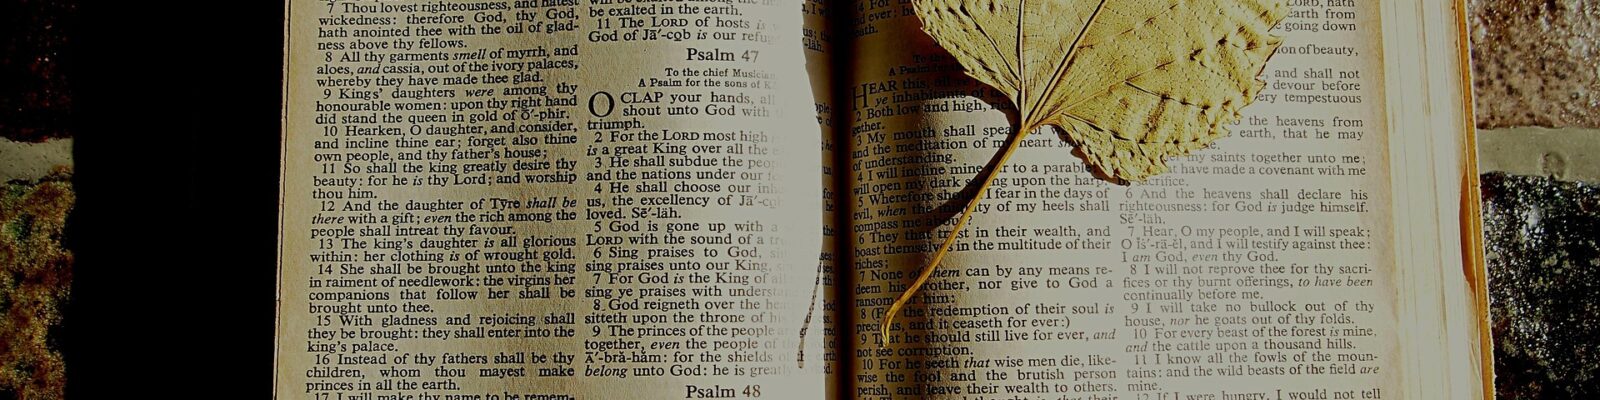 7 Thou lovest righteousness, and hatest
wickedness: therefore God, thy God,
hath anointed thee with the oil of glad-
ness above thy fellows.
8 All thy garments smell of myrrh, and
aloes, and cassia, out of the ivory palaces,
whereby they have made thee glad.
9 Kings' daughters were among thy
honourable women: upon thy right hand
did stand the queen in gold of Ō'-phir.
10 Hearken, O daughter, and consider,
and incline thine ear; forget also thine
own people, and thy father's house;
11 So shall the king greatly desire thy
beauty: for he is thy Lord; and worship
thou him.
12 And the daughter of Tyre shall be
there with a gift; even the rich among the
people shall intreat thy favour.
13 The king's daughter is all glorious
within: her clothing is of wrought gold.
14 She shall be brought unto the king
in raiment of needlework: the virgins her
companions that follow her shall be
brought unto thee.
15 With gladness and rejoicing shall
they be brought: they shall enter into the
king's palace.
16 Instead of thy fathers shall be thy
children, whom thou mayest make
princes in all the earth.
17 I will make thy name to be remem-
be exalted in the earth.
11 The LORD of hosts is
God of Jā'-cǫb is our refug
Psalm 47
To the chief Musician,
A Psalm for the sons of K
O CLAP your hands, all
shout unto God with
triumph.
2 For the LORD most high
is a great King over all the
3 He shall subdue the peop
and the nations under our
4 He shall choose our inh
us, the excellency of Jā'-cǫ
loved. Sē'-läh.
5 God is gone up with a
LORD with the sound of a tr
6 Sing praises to God, si
sing praises unto our King, s
7 For God is the King of all
sing ye praises with understan
8 God reigneth over the hea
sitteth upon the throne of his
9 The princes of the people
together, even the people of
Ā'-brā-hăm: for the shields
belong unto God: he is greatly
Psalm 48
HEAR this,
ye inhabitants of
2 Both low and high, rich
gether.
3 My mouth shall speak of
and the meditation of my heart
of understanding.
4 I will incline mine ear to a parable
will open my dark saying upon the harp.
5 Wherefore should I fear in the days of
evil, when the iniquity of my heels shall
compass me about?
6 They that trust in their wealth, and
boast themselves in the multitude of their
riches;
7 None of them can by any means re-
deem his brother, nor give to God a
ransom for him:
8 (For the redemption of their soul is
precious, and it ceaseth for ever:)
9 That he should still live for ever, and
not see corruption.
10 For he seeth that wise men die, like-
wise the fool and the brutish person
perish, and leave their wealth to others.
LORD, hath
earth from
going down
of beauty,
and shall not
devour before
very tempestuous
the heavens from
earth, that he may
my saints together unto me;
that have made a covenant with me
sacrifice.
6 And the heavens shall declare his
righteousness: for God is judge himself.
Sē'-läh.
7 Hear, O my people, and I will speak;
O Ĭs'-rā-ĕl, and I will testify against thee:
I am God, even thy God.
8 I will not reprove thee for thy sacri-
fices or thy burnt offerings, to have been
continually before me.
9 I will take no bullock out of thy
house, nor he goats out of thy folds.
10 For every beast of the forest is mine,
and the cattle upon a thousand hills.
11 I know all the fowls of the moun-
tains: and the wild beasts of the field are
mine.
12 If I were hungry, I would not tell